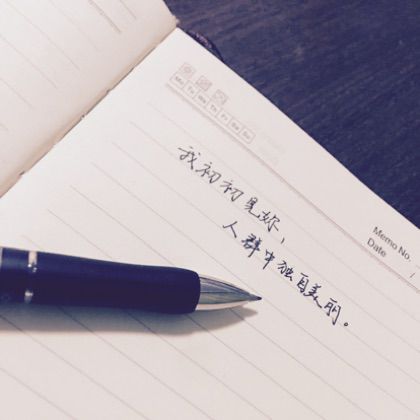 Mo Tu We Th Fr Sa Su
Memo No.
Date / 
我初初見妳，
人群中独自美丽。